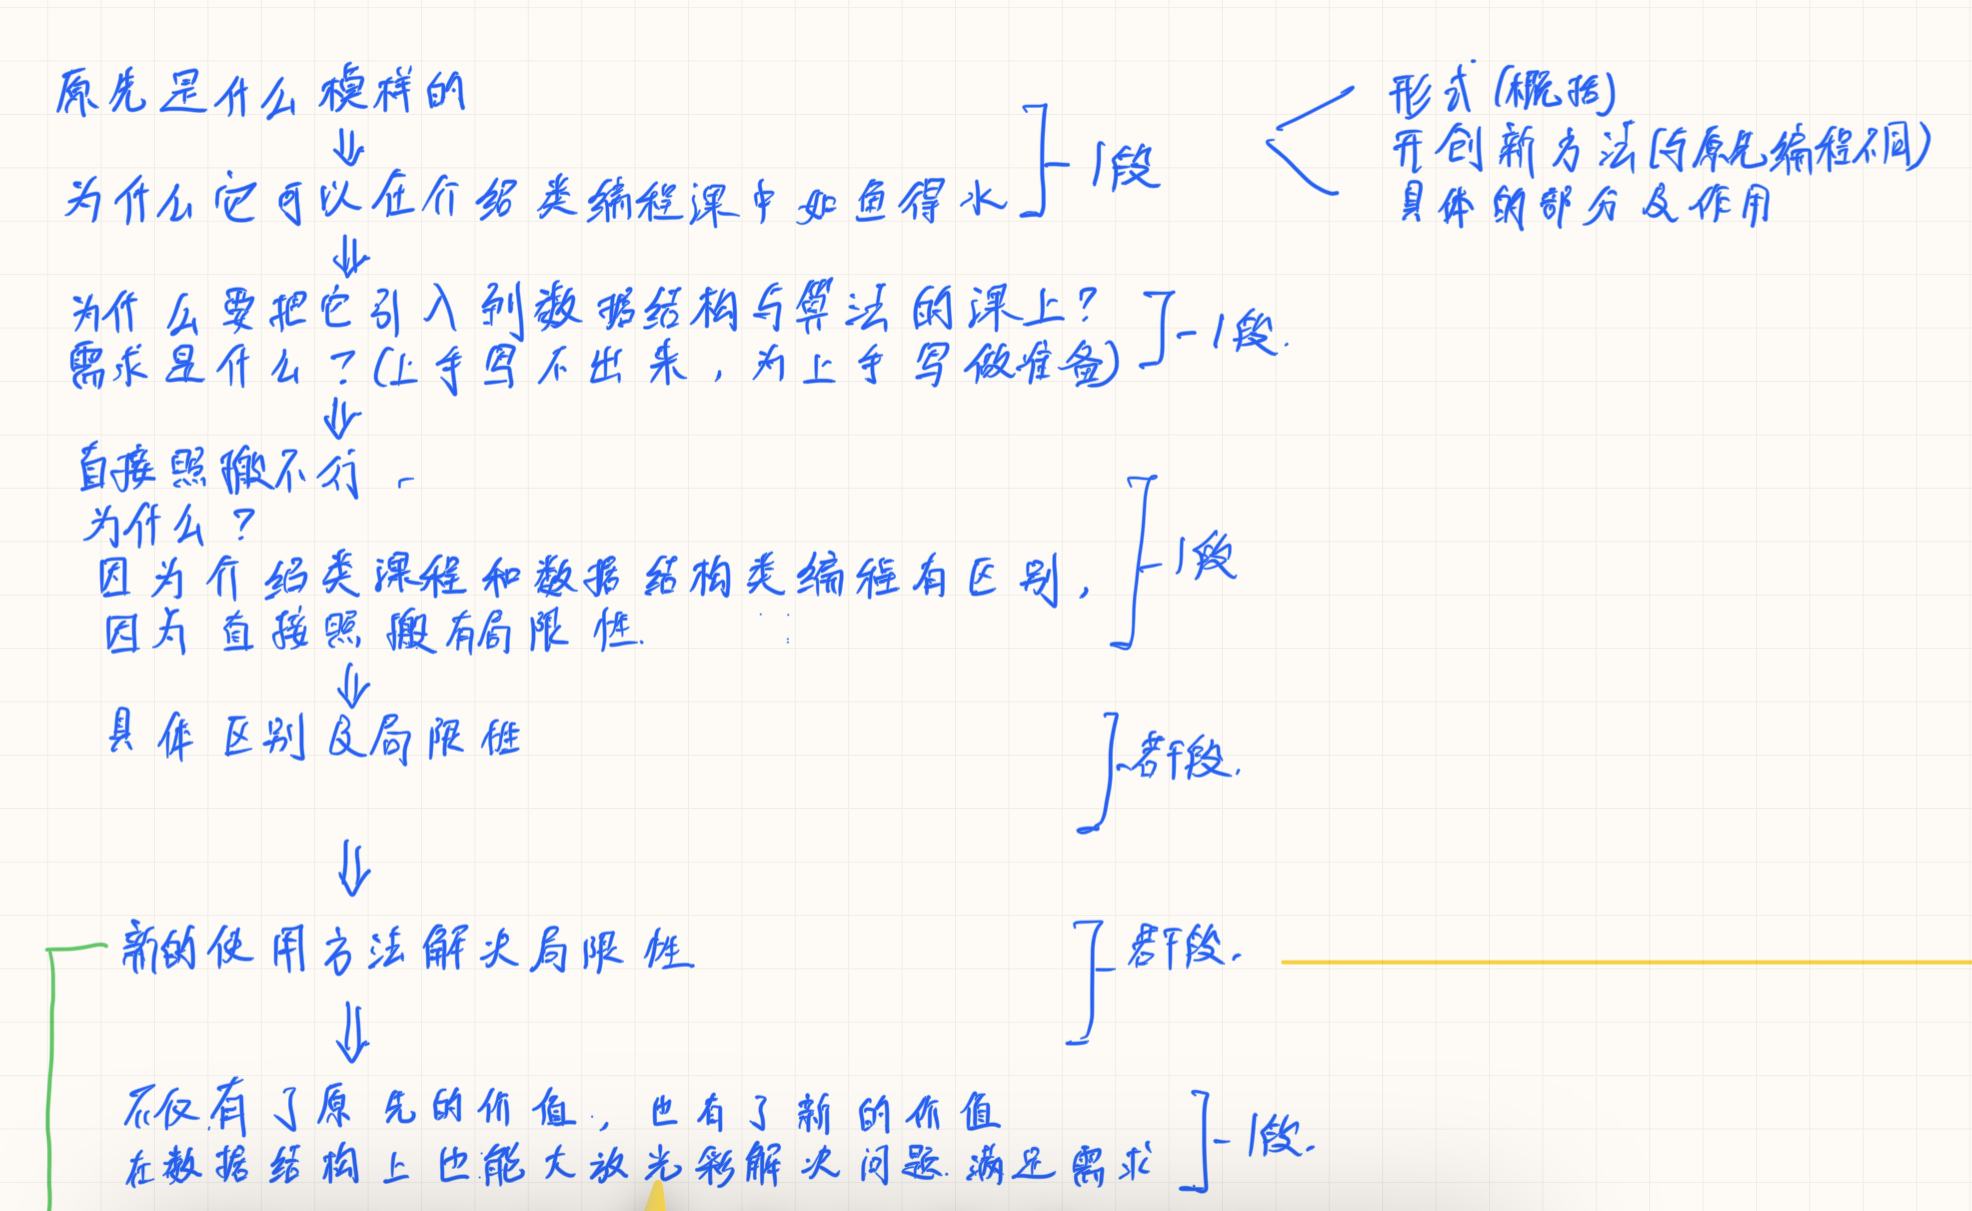 原先是什么模样的
为什么它可以在介绍类编程课中如鱼得水
1段
形式(概括)
开创新方法(与原先编程不同)
具体的部分及作用
为什么要把它引入到数据结构与算法的课上?
需求是什么?(上手写不出来,为上手写做准备)
1段.
直接照搬不行
为什么?
因为介绍类课程和数据结构类编程有区别,
因为直接照搬有局限性.
1段
具体区别及局限性
若干段.
新的使用方法解决局限性
若干段.
不仅有了原先的价值,也有了新的价值
在数据结构上也能大放光彩解决问题.满足需求
1段.